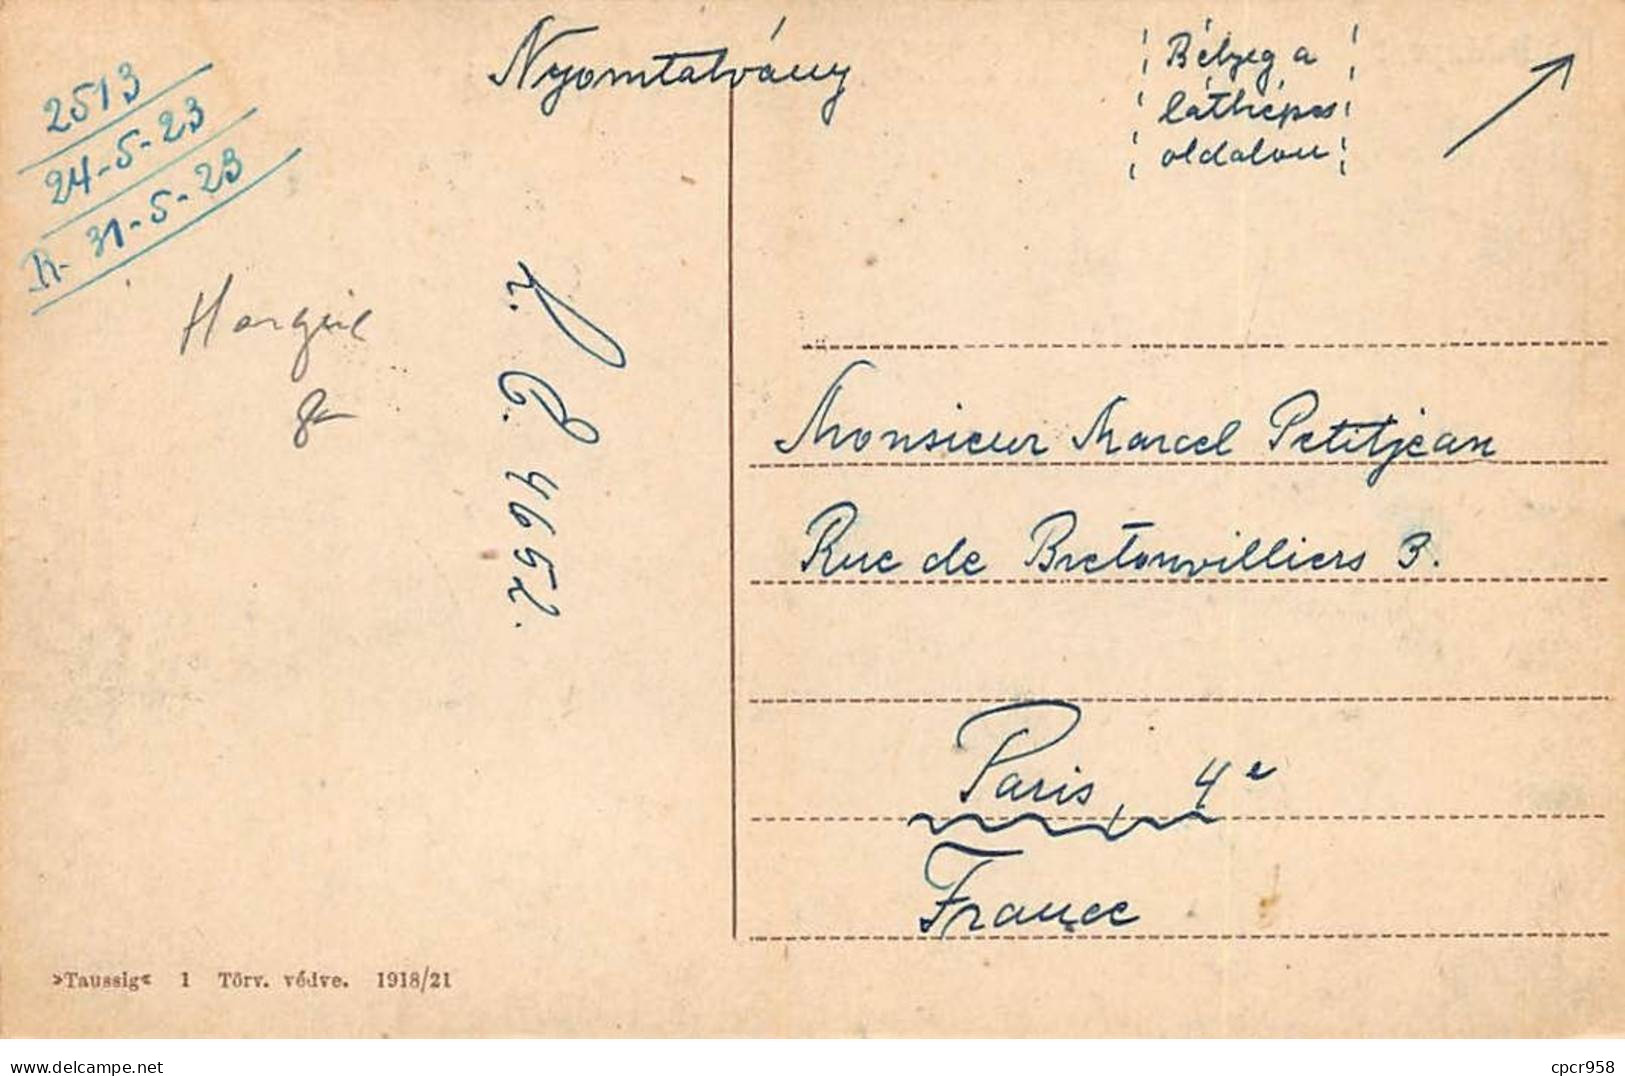 Nyomtatvány
Bélyeg a
látképes
oldalon
2513
24-5-23
R- 31-5-23
4652.
Monsieur Marcel Petitjean
Rue de Bretonvilliers 3.
Paris, 4e
France
»Taussig« 1 Törv. védve. 1918/21
delcampe.net
cpcr958